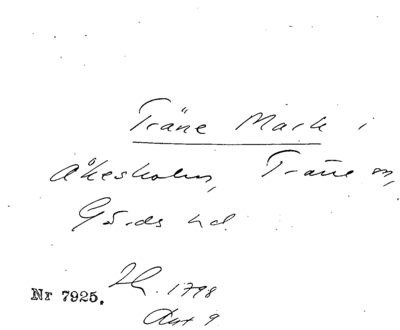 Träne Mark i
Åkesholm, Träne sn,
Gärds hd.
Nr 7925. 1798
Akt 9